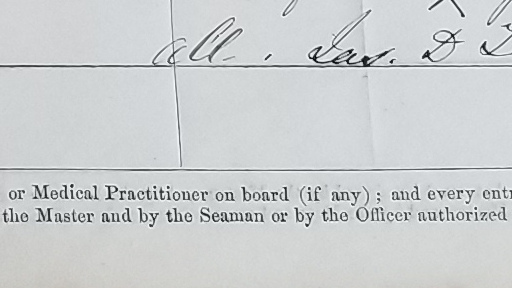 all. Jas. D
or Medical Practitioner on board (if any) ; and every
the Master and by the Seaman or by the Officer authorized